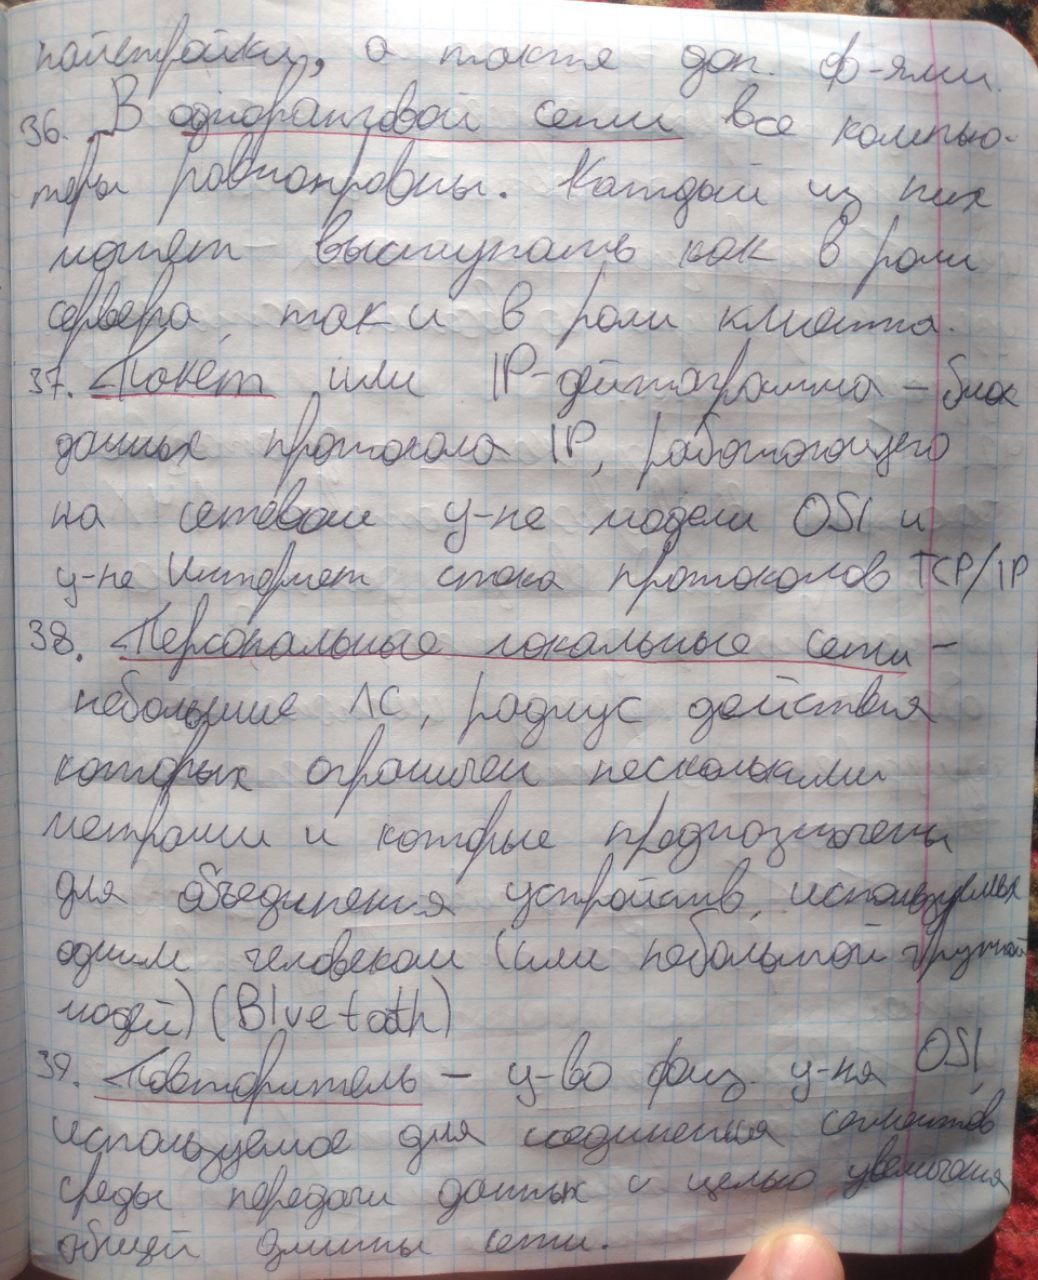 надстройки, а также доп. ф-ями.
36. В одноранговой сети все компью-
теры равноправны. Каждый из них
может выступать как в роли
сервера, так и в роли клиента.
37. Пакет или IP-дейтаграмма – блок
данных протокола IP, работающего
на сетевом у-не модели OSI и
у-не Интернет стека протоколов TCP/IP
38. Персональные локальные сети –
небольшие ЛС, радиус действия
которых ограничен несколькими
метрами и которые предназначены
для объединения устройств, используемых
одним человеком (или небольшой группой
людей) (Bluetooth)
39. Повторитель – у-во физ. у-ня OSI,
используемое для соединения сегментов
среды передачи данных с целью увеличения
общей длины сети.